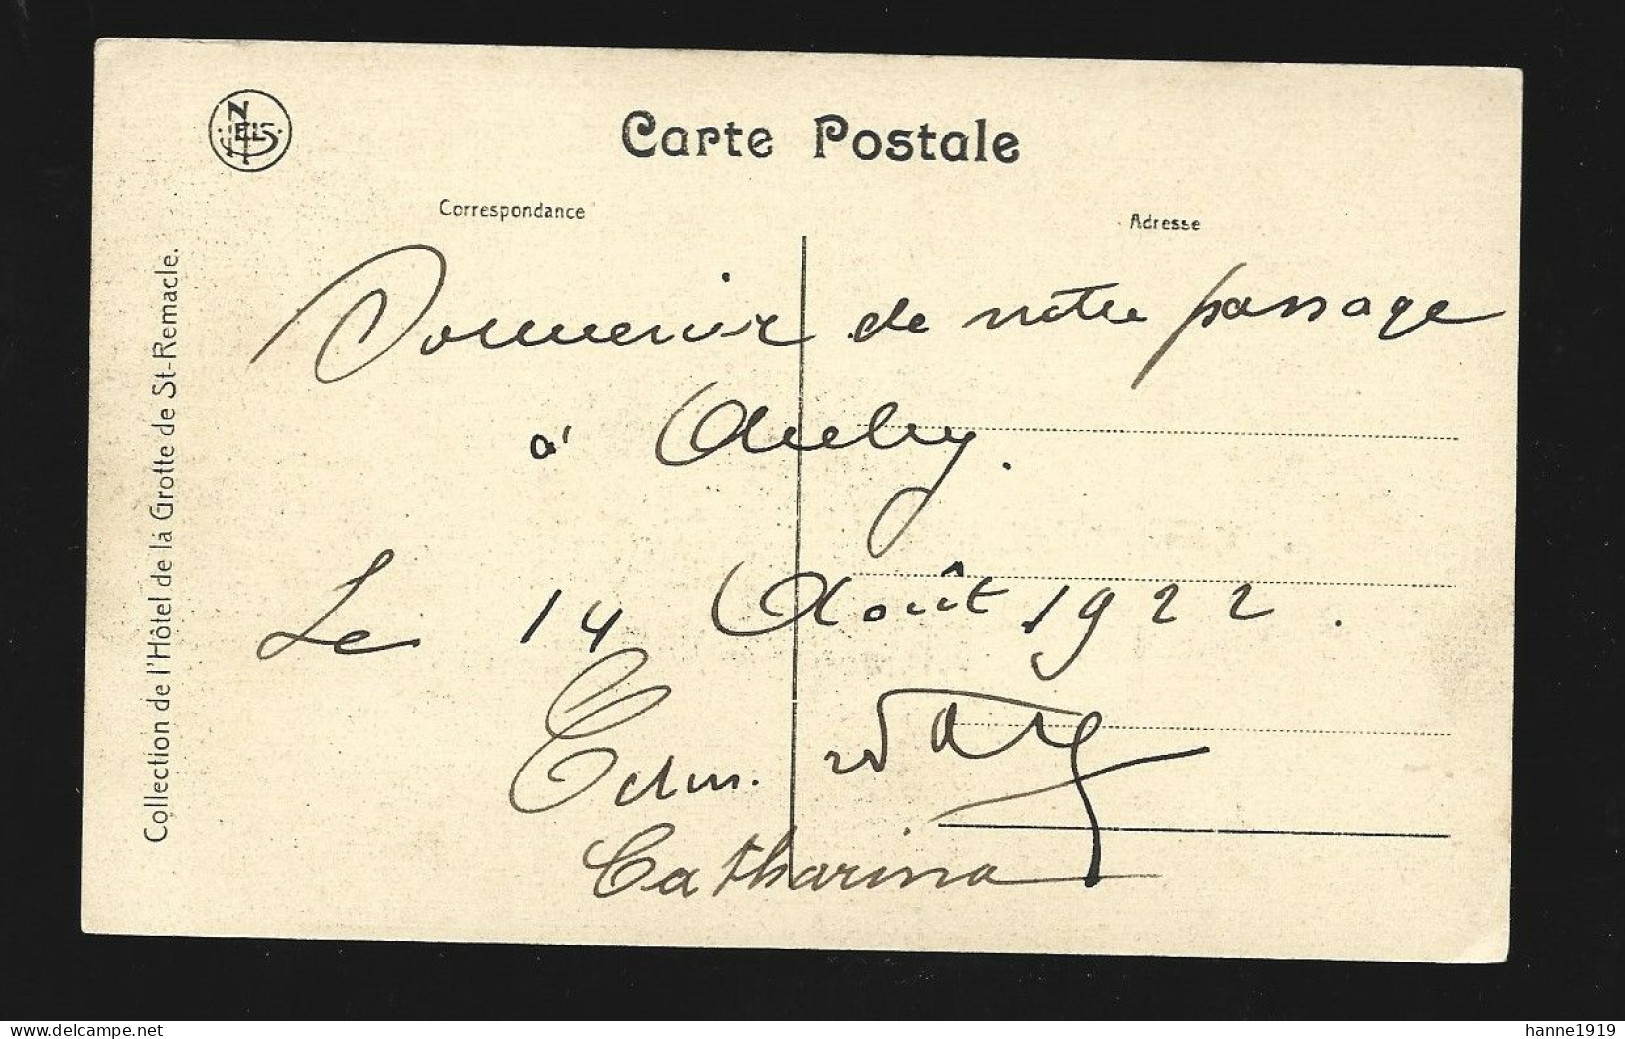 NELS
Carte Postale
Correspondance
Adresse
Collection de l'Hôtel de la Grotte de St-Remacle.
Souvenir de notre passage
à Auby.
Le 14 Août 1922.
Edm.
Catharina
www.delcampe.net
hanne1919